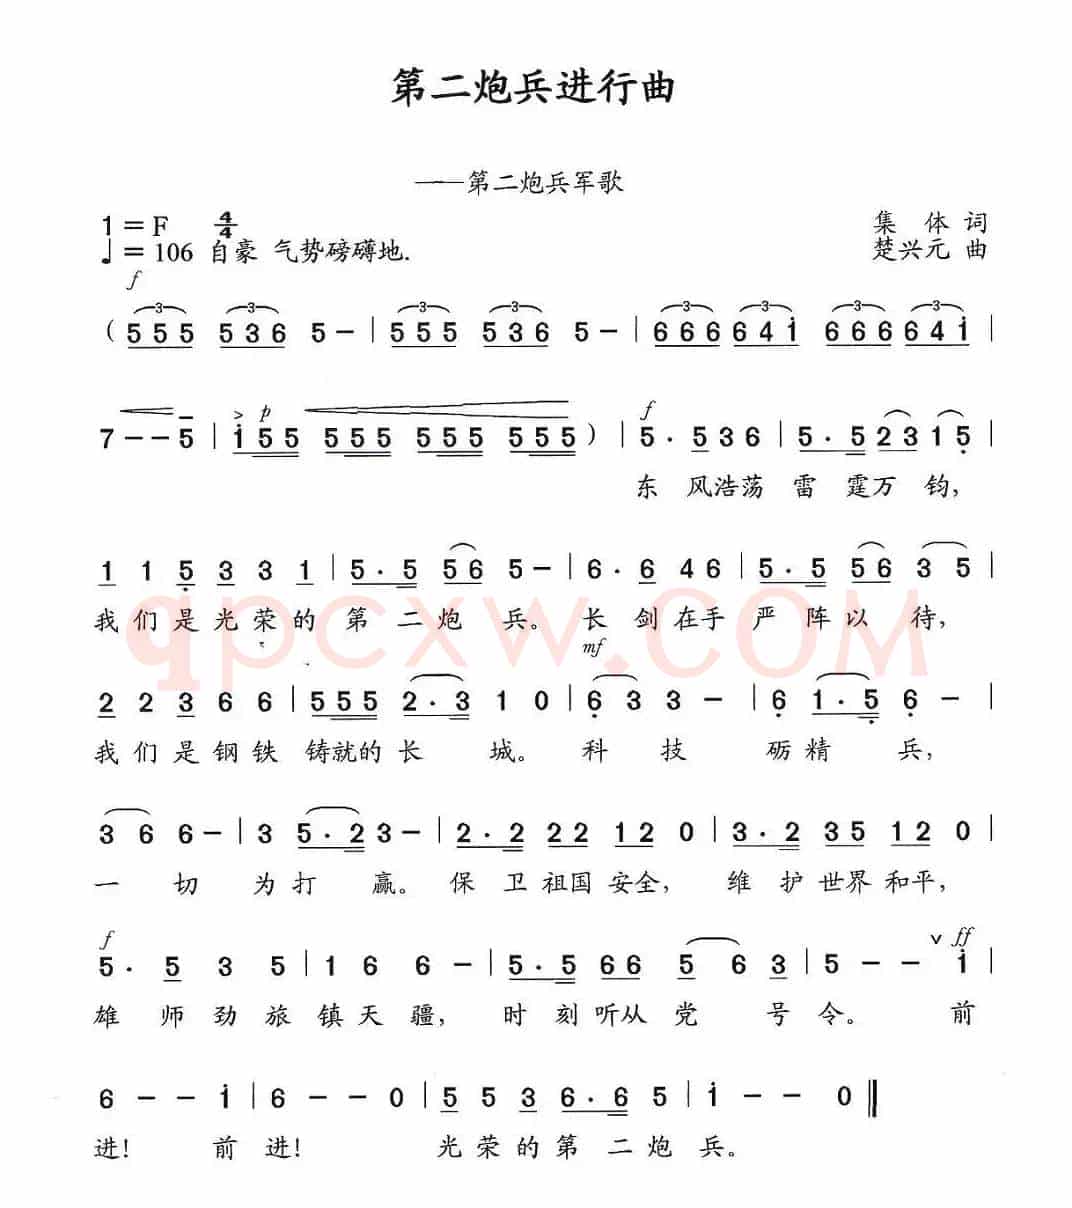 第二炮兵进行曲
——第二炮兵军歌
1 = F 4/4 集 体 词
♩ = 106 自豪 气势磅礴地. 楚兴元 曲
f
3 3 3 3 3 3 3 3
( 5 5 5 5 3 6 5 – | 5 5 5 5 3 6 5 – | 6 6 6 6 4 i 6 6 6 6 4 i |
> p f
7 – – 5 | i 5 5 5 5 5 5 5 5 5 5 5 ) | 5 · 5 3 6 | 5 · 5 2 3 1 5 |
东 风浩荡 雷 霆万 钧,
1 1 5 3 3 1 | 5 · 5 5 6 5 – | 6 · 6 4 6 | 5 · 5 5 6 3 5 |
我们是光荣的 第 二炮 兵。 长 剑在手 严 阵以 待,
qpcxw.COM
mf
2 2 3 6 6 | 5 5 5 2 · 3 1 0 | 6 3 3 – | 6 1 · 5 6 – |
我们是钢铁 铸就的长 城。 科 技 砺精 兵,
3 6 6 – | 3 5 · 2 3 – | 2 · 2 2 2 1 2 0 | 3 · 2 3 5 1 2 0 |
一 切 为打 赢。 保 卫祖国安全, 维 护世界和平,
f v ff
5 · 5 3 5 | 1 6 6 – | 5 · 5 6 6 5 6 3 | 5 – – i |
雄 师劲旅镇天疆, 时 刻听从党 号令。 前
6 – – i | 6 – – 0 | 5 5 3 6 · 6 5 | i – – 0 ‖
进! 前进! 光荣的第 二炮 兵。